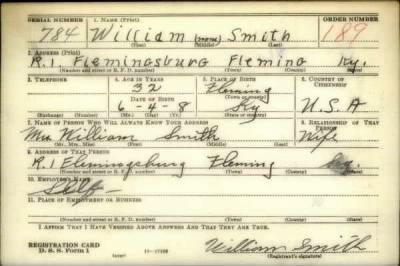 SERIAL NUMBER 1. NAME (Print) ORDER NUMBER
784 William (none) Smith 189
(First) (Middle) (Last)
2. ADDRESS (Print)
R.1 Flemingsburg Fleming Ky.
(Number and street or R. F. D. number) (Town) (County) (State)
3. TELEPHONE 4. AGE IN YEARS 5. PLACE OF BIRTH 6. COUNTRY OF CITIZENSHIP
32 Fleming
DATE OF BIRTH (Town or county)
6-4-8 Ky U.S.A
(Exchange) (Number) (Mo.) (Day) (Yr.) (State or country)
7. NAME OF PERSON WHO WILL ALWAYS KNOW YOUR ADDRESS 8. RELATIONSHIP OF THAT PERSON
Mrs William Smith Wife
(Mr., Mrs., Miss) (First) (Middle) (Last)
9. ADDRESS OF THAT PERSON
R.1 Flemingsburg Fleming Ky.
(Number and street or R. F. D. number) (Town) (County) (State)
10. EMPLOYER'S NAME
Self
11. PLACE OF EMPLOYMENT OR BUSINESS
(Number and street or R. F. D. number) (Town) (County) (State)
I AFFIRM THAT I HAVE VERIFIED ABOVE ANSWERS AND THAT THEY ARE TRUE.
REGISTRATION CARD
D. S. S. Form 1 William Smith
(Registrant's signature)